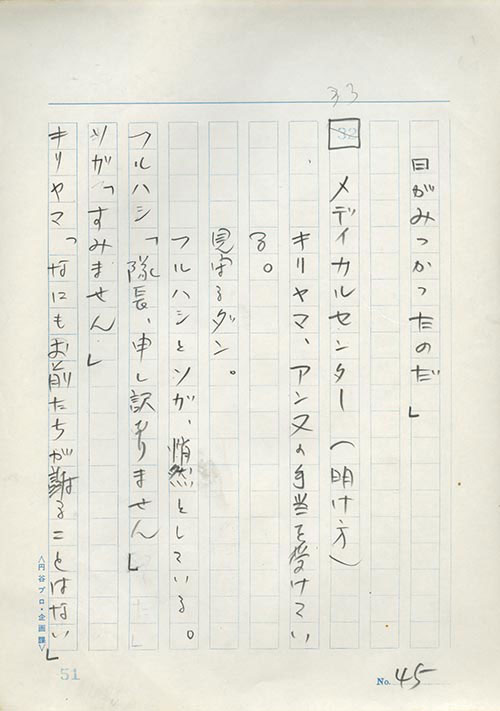 33
32
日がみつかったのだ」
メディカルセンター（明け方）
キリヤマ、アンヌの手当を受けてい
る。
見守るダン。
フルハシとソガ、悄然としている。
フルハシ「隊長、申し訳ありません」
ソガ「すみません」
キリヤマ「なにもお前たちが謝ることはない」
＜円谷プロ・企画課＞
51
No. 45